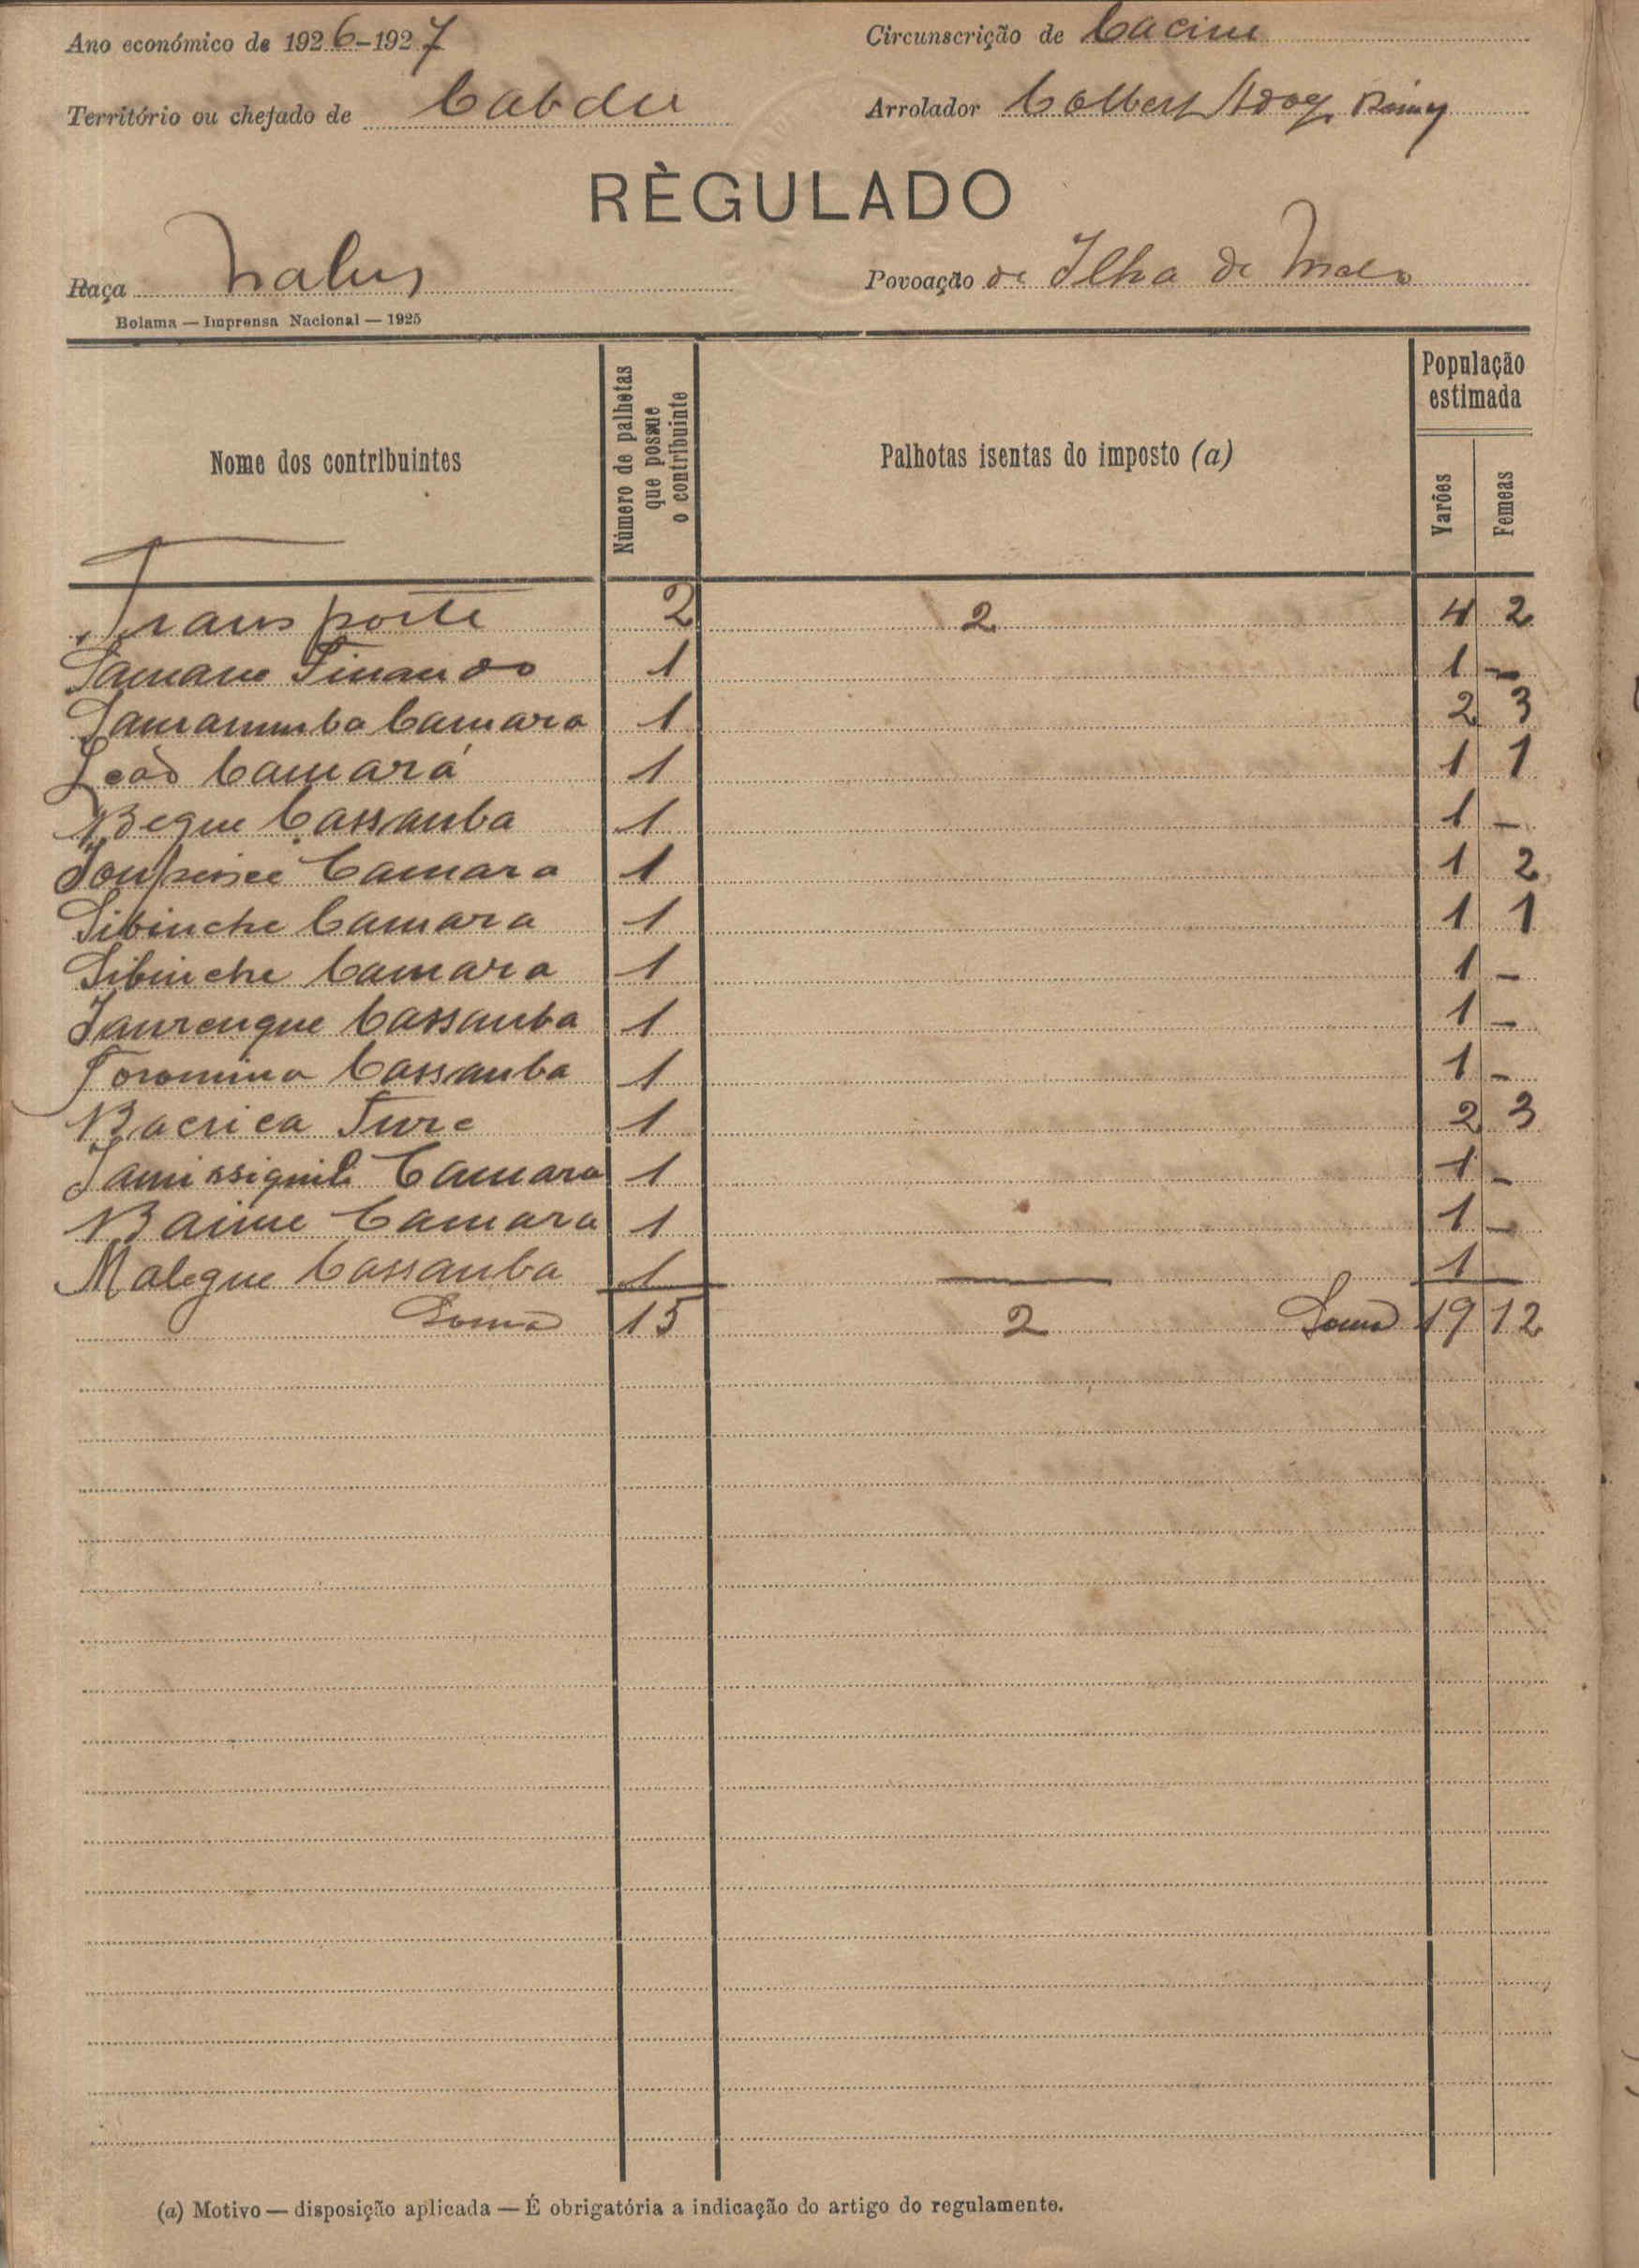 Ano económico de 1926-1927
Circunscrição de Cacine
Território ou chefado de Cabdu
Arrolador
RÈGULADO
Raça Nalus
Povoação de Ilha de Melo
Bolama — Imprensa Nacional — 1925
Nome dos contribuintes
Número de palhotas que possue o contribuinte
Palhotas isentas do imposto (a)
População estimada
Varões
Femeas
Transporte 2 2 4 2
1 1 -
Camara 1 2 3
Leão Camará 1 1 1
Beque Cassamba 1 1 -
Camara 1 1 2
Sibinche Camara 1 1 1
Sibinche Camara 1 1 -
Cassamba 1 1 -
Toromina Cassamba 1 1 -
Bacrica Ture 1 2 3
Camara 1 1 -
Baime Camara 1 1 -
Malegue Cassamba 1 1
Soma 15 2 Soma 19 12
(a) Motivo — disposição aplicada — É obrigatória a indicação do artigo do regulamento.